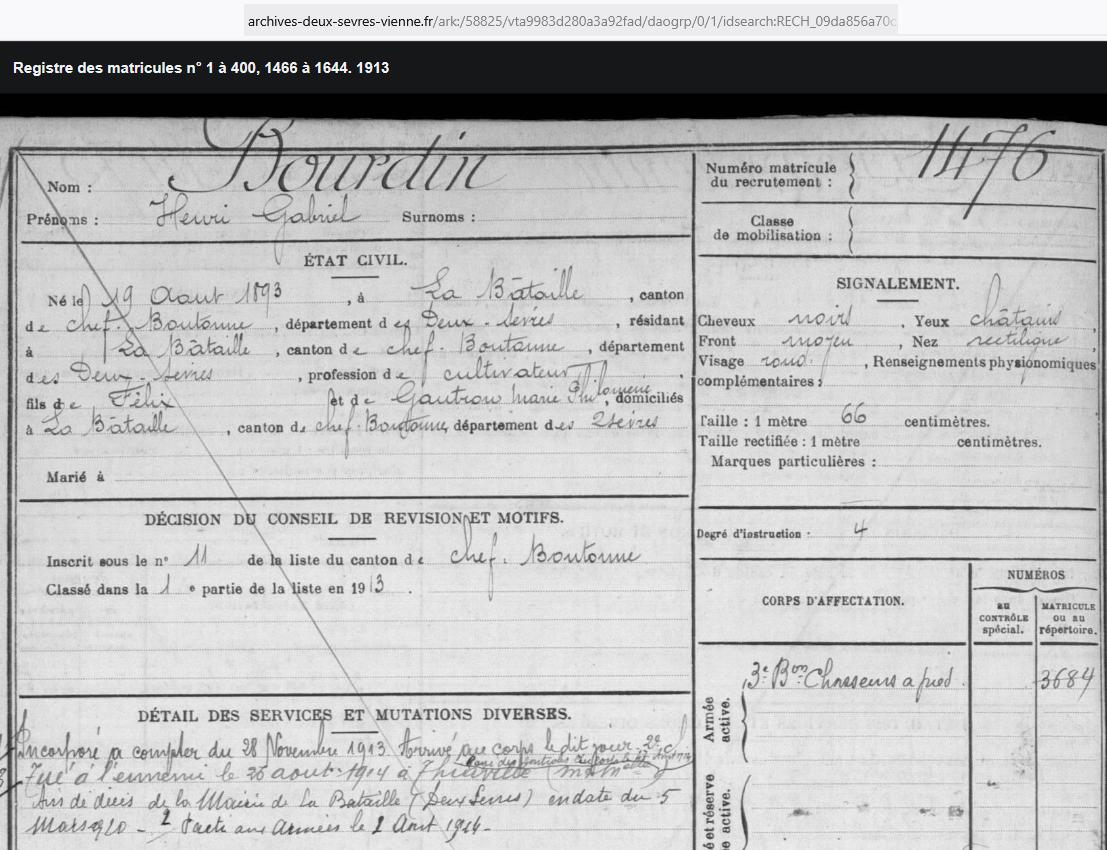 archives-deux-sevres-vienne.fr/ark:/58825/vta9983d280a3a92fad/daogrp/0/1/idsearch:RECH_09da856a70c
Registre des matricules n° 1 à 400, 1466 à 1644. 1913
Nom : Bourdin
Prénoms : Henri Gabriel Surnoms :
ÉTAT CIVIL.
Né le 19 Aout 1893, à La Bâtaille, canton
de chef-Boutonne, département des Deux-Sèvres, résidant
à La Bâtaille, canton de chef-Boutonne, département
des Deux-Sèvres, profession de cultivateur
fils de Félix et de Gautron Marie Philomène, domiciliés
à La Bâtaille, canton de chef-Boutonne, département des 2 Sèvres
Marié à
DÉCISION DU CONSEIL DE REVISION ET MOTIFS.
Inscrit sous le n° 11 de la liste du canton de chef-Boutonne
Classé dans la 1e partie de la liste en 1913.
DÉTAIL DES SERVICES ET MUTATIONS DIVERSES.
Incorporé a compter du 28 Novembre 1913. Arrivé au corps le dit jour. 2e cl
Tué à l'ennemi le 26 aout 1914 à
Avis de décès de la Mairie de La Bataille (Deux Sevres) en date du 5
Mars 1920 - aux Armées le 2 Aout 1914-
Numéro matricule
du recrutement : 1476
Classe
de mobilisation :
SIGNALEMENT.
Cheveux noirs, Yeux châtains
Front moyen, Nez rectiligne
Visage rond, Renseignements physionomiques
complémentaires :
Taille : 1 mètre 66 centimètres.
Taille rectifiée : 1 mètre centimètres.
Marques particulières :
Degré d'instruction : 4
CORPS D'AFFECTATION.
NUMÉROS
au
CONTRÔLE
spécial.
MATRICULE
ou au
répertoire.
Armée
active.
3e Bon Chasseurs a pied. 3684
et réserve
active.